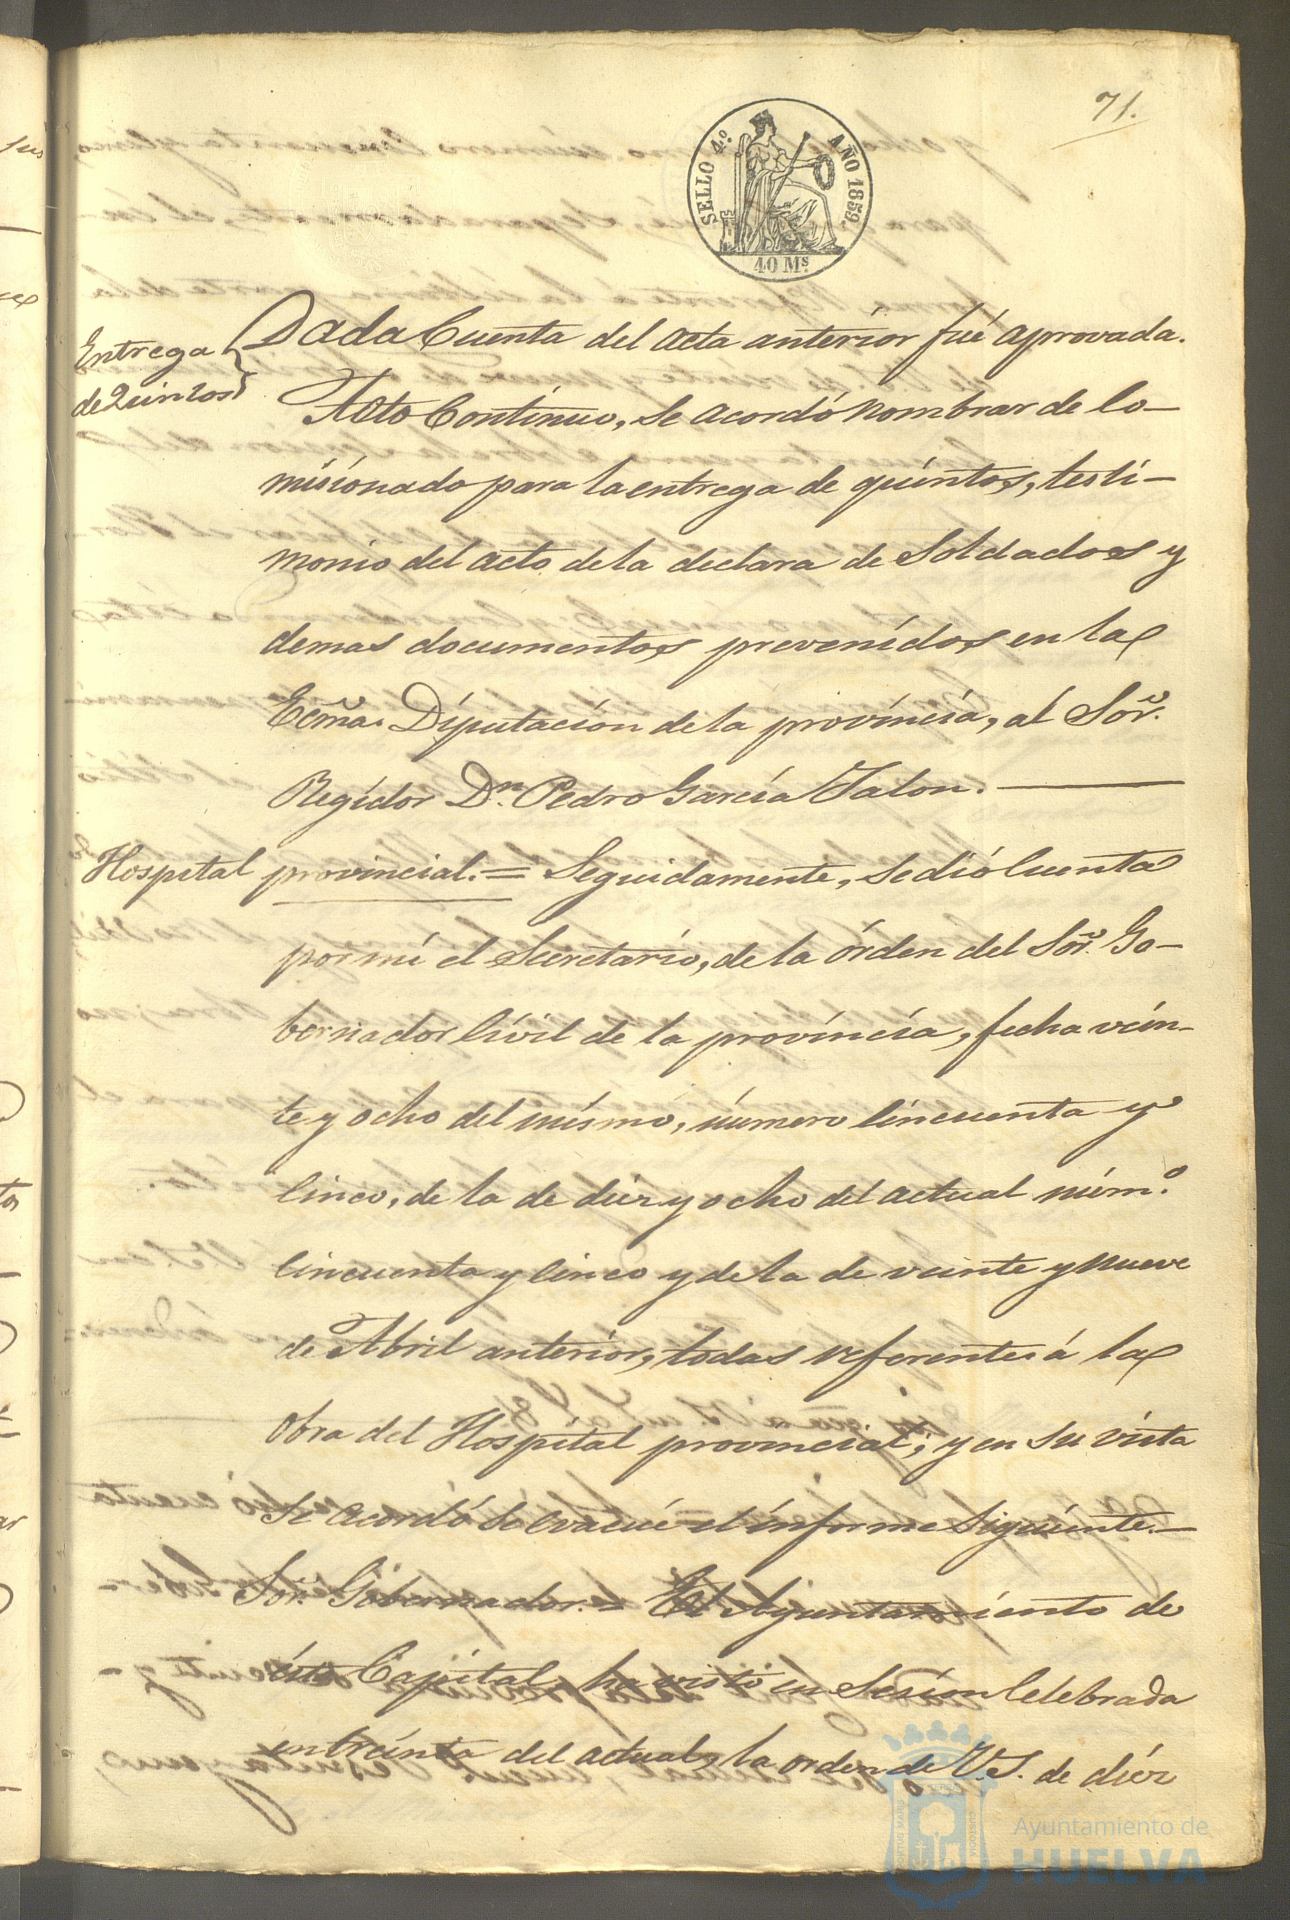 71.
SELLO 4.º AÑO 1859.
40 Ms.
Entrega
de Quintos
Dada Cuenta del acta anterior fué aprovada.
Acto Contínuo, se acordó nombrar de Co-
misionado para la entrega de quintos, testi-
monio del acto de la declara de Soldados y
demas documentos prevenidos en la
Ecma. Diputacion de la provincia, al Sor.
Regidor Dn. Pedro García Jalon.
Hospital provincial.= Seguidamente, se dió Cuenta
por mí el Secretario, de la órden del Sor. Go-
bernador Civil de la provincia, fecha vein-
te y ocho del mismo, número Cincuenta y
Cinco, de la de diez y ocho del actual núm.º
Cincuenta y Cinco y de la de veinte y nueve
de Abril anterior, todas referentes á la
obra del Hospital provincial; y en su vista
Se acordó se evacúe el informe Siguiente.—
Sor. Gobernador.= El Ayuntamiento de
ésta Capital, ha visto en Sesion Celebrada
en treinta del actual, la orden de V.S. de diez
Ayuntamiento de
HUELVA